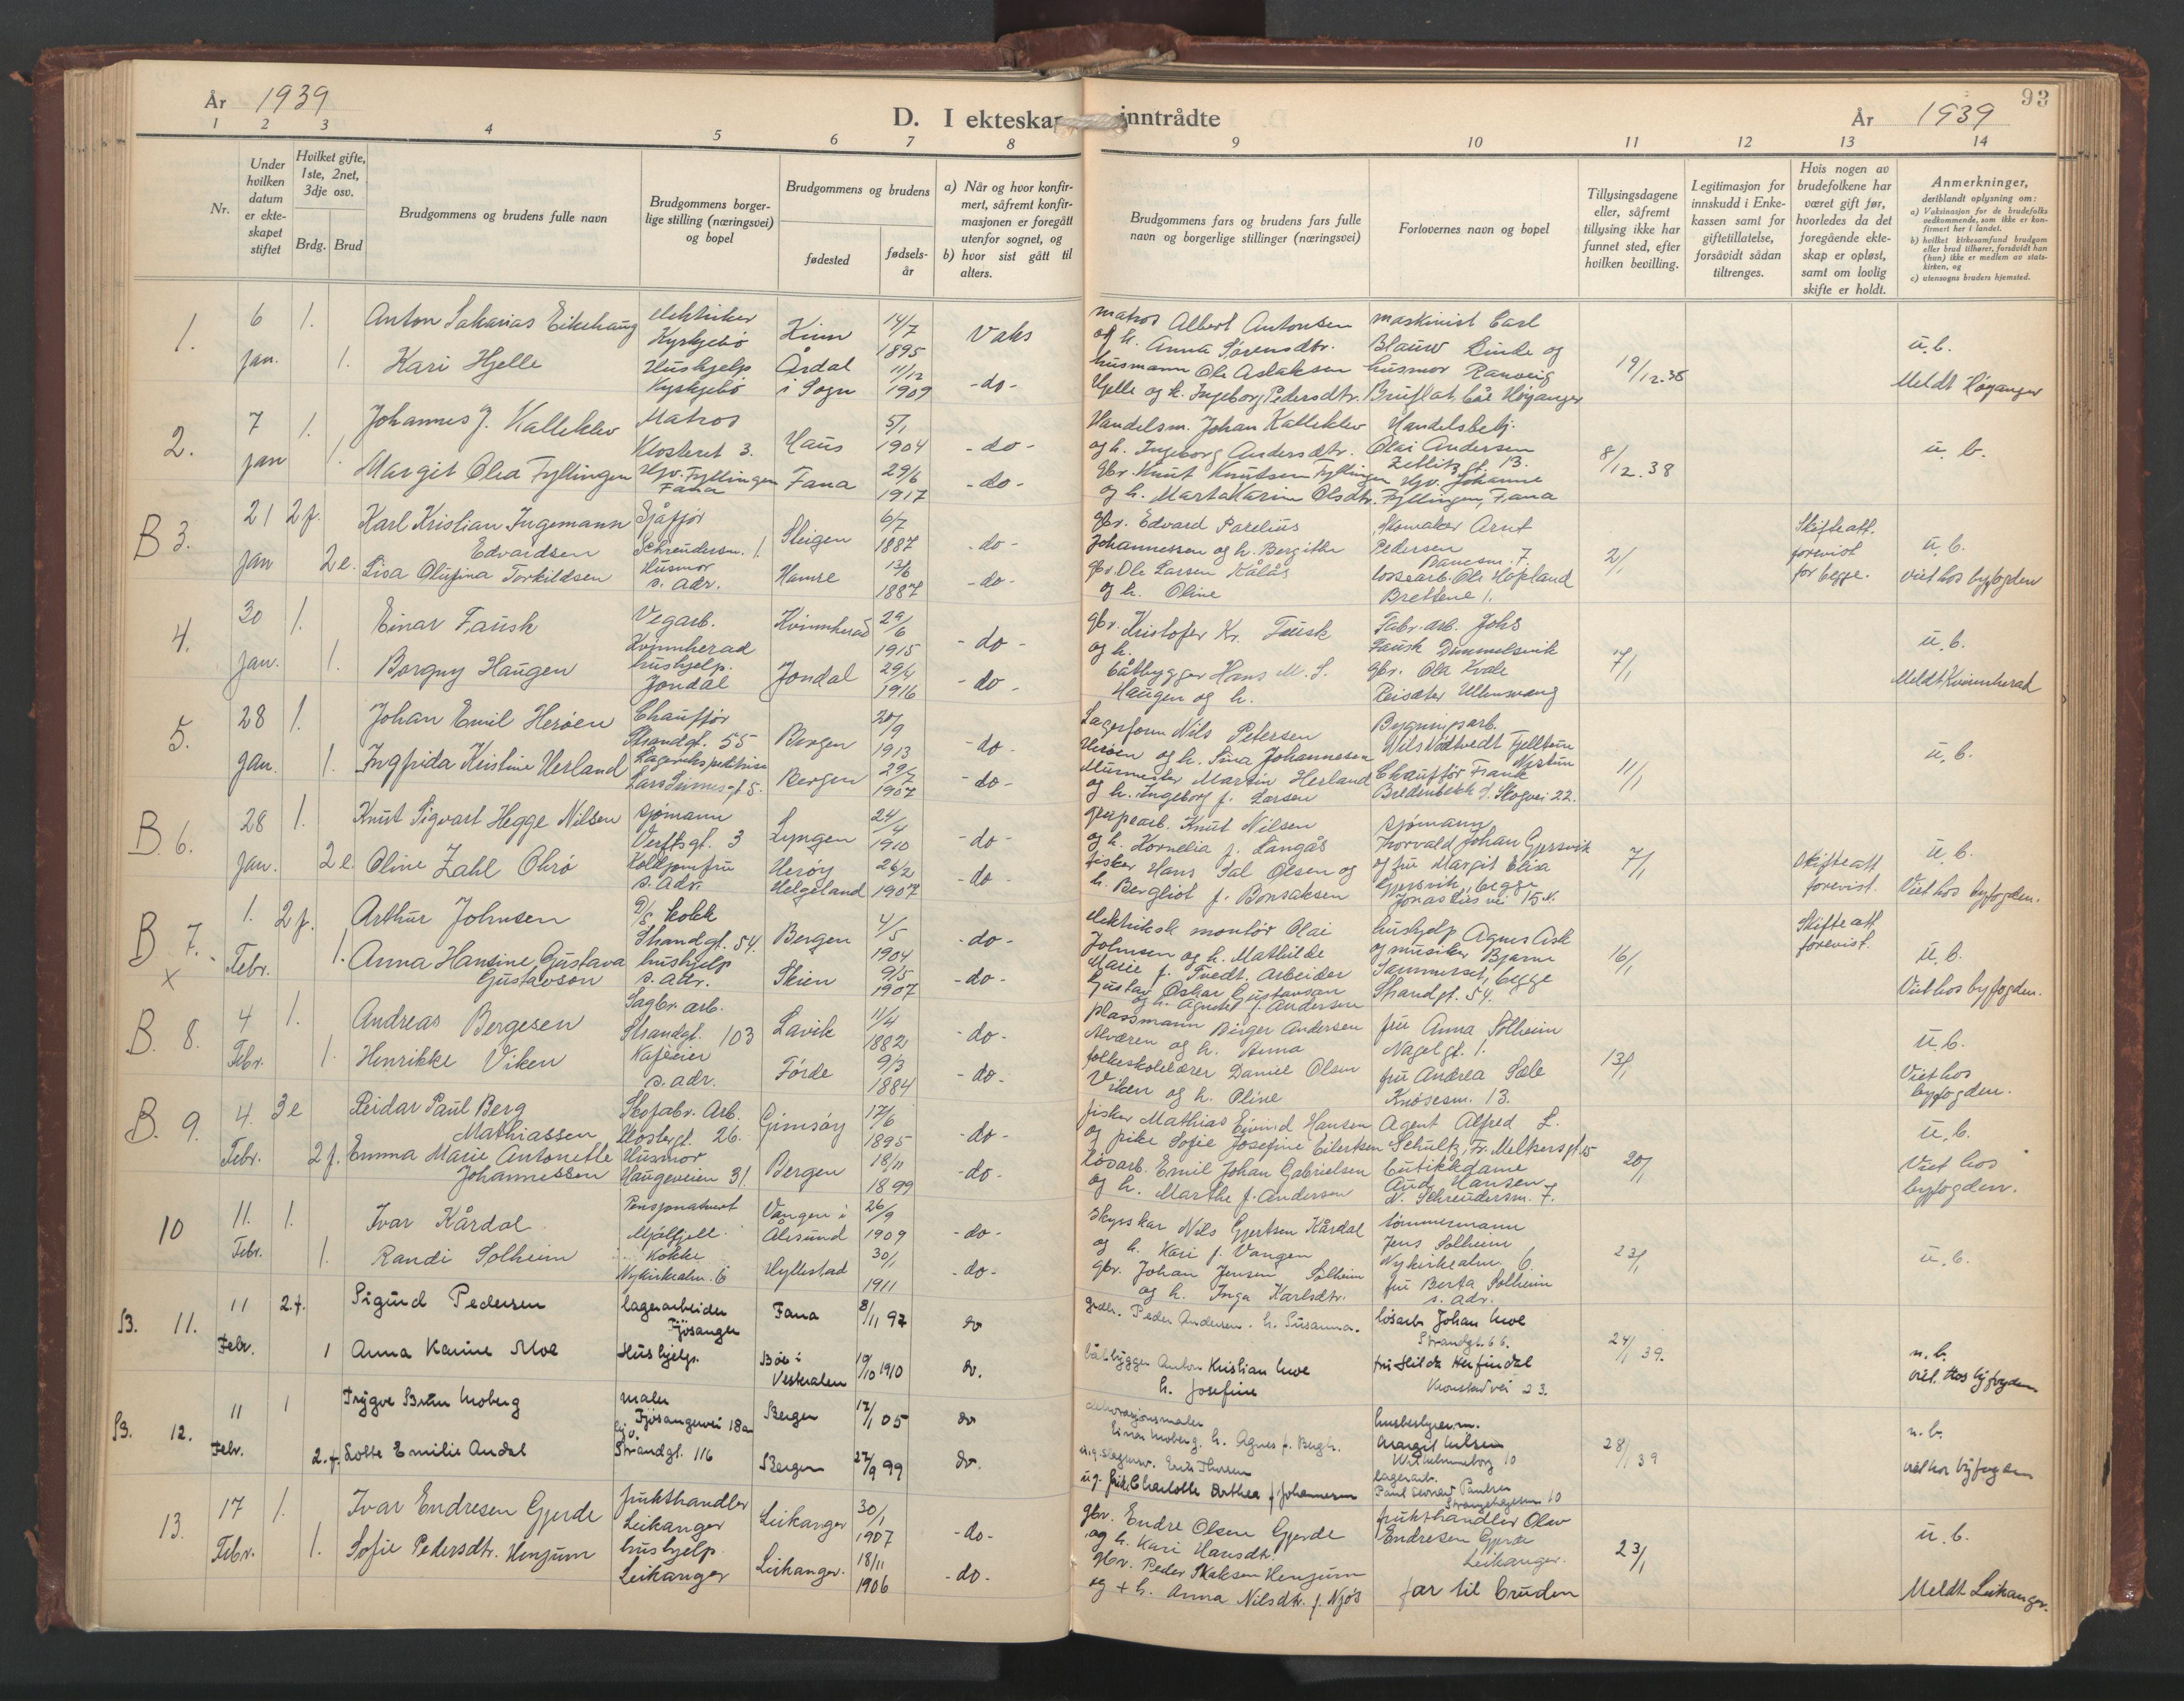 År 1939
D. I ekteskap inntrådte
År 1939
93
1 2 3 4 5 6 7 8 9 10 11 12 13 14
Nr.
Under hvilken datum er ekteskapet stiftet
Hvilket gifte, 1ste, 2net, 3dje osv.
Brdg. Brud
Brudgommens og brudens fulle navn
Brudgommens borgerlige stilling (næringsvei) og bopel
Brudgommens og brudens
fødested
fødselsår
a) Når og hvor konfirmert, såfremt konfirmasjonen er foregått utenfor sognet, og
b) hvor sist gått til alters.
Brudgommens fars og brudens fars fulle navn og borgerlige stillinger (næringsvei)
Forlovernes navn og bopel
Tillysingsdagene eller, såfremt tillysing ikke har funnet sted, efter hvilken bevilling.
Legitimasjon for innskudd i Enkekassen samt for giftetillatelse, forsåvidt sådan tiltrenges.
Hvis nogen av brudefolkene har været gift før, hvorledes da det foregående ekteskap er opløst, samt om lovlig skifte er holdt.
Anmerkninger, deriblandt oplysning om:
a) Vaksinasjon for de brudefolks vedkommende, som ikke er konfirmert her i landet.
b) hvilket kirkesamfund brudgom eller brud tilhører, forsåvidt han (hun) ikke er medlem av statskirken, og
c) utensogns bruders hjemsted.
1. 6 jan. 1. Anton Sakarias Eikehaug elektriker Kyrkjebø Kinn 14/7 1895 Vaks
matros Albert Antonsen og h. Anna Sørensdtr. maskinist Carl Blauw Linde og 19/12.38 u.b.
1. Kari Hjelle Hushjelp Kyrkjebø Årdal i Sogn 11/12 1909 -do-
husmann Ole Aslaksen Hjelle og h. Ingeborg Pedersdtr. husmor Ranveig Bruflat, b&e Høyanger Meldt Høyanger
2. 7 jan 1. Johannes J. Kalleklev Matros Klosteret 3. Haus 5/1 1904 -do-
Handelsm. Johan Kalleklev og h. Ingeborg Andersdtr. Handelsbetj. Olai Andersen Zetlitzgt. 13. 8/12.38 u. b.
1. Margit Olea Fyllingen Hjv. Fyllingen Fana Fana 29/6 1917 -do-
gbr. Knut Knutsen Fyllingen og h. Marta Karine Olsdtr. Hjv. Johanne Fyllingen, Fana
B 3. 21 jan 2 f. Karl Kristian Ingemann Edvardsen Sjåfjør Schreudersm. 1. Steigen 6/7 1887 -do-
gbr. Edvard Parelius Johannessen og h. Bergithe Skomaker Arnt Pedersen 7. 2/1 Skifteatt. forevist for begge. u. b.
2 e. Lisa Olufina Torkildsen Husmor s. adr. Hamre 13/6 1887 -do-
gbr. Ole Larsen Kålås og h. Oline lossearb. Ole Hopland Brettene 1. viet hos byfogden
4. 30 jan. 1. Einar Fausk Vegarb. Kvinnherad Kvinnherad 29/6 1915 -do-
gbr. Kristofer Kr. Fausk og h. Fabr. arb. Johs Fausk Dimmelsvik 7/1 u. b.
1. Borgny Haugen hushjelp. Jondal Jondal 29/4 1916 -do-
båtbygger Hans M. S. Haugen og h. gbr. Ola Kvale Reisæter Ullensvang Meldt Kvinnherad
5. 28 jan. 1. Johan Emil Herøen Chauffør Strandgt. 55 Bergen 20/9 1913 -do-
Lagerform Nils Petersen Herøen og h. Sina Johannessen Bygningsarb. Nils Nødtvedt Fjelltun Nestun 11/1 u. b.
1. Ingfrida Kristine Herland Lagerekspeditrise Bergen 29/7 1907 -do-
Murmester Martin Herland og h. Ingeborg f. Larsen Chauffør Frank Bredenbekk J. Skogvei 22.
B. 6. 28 jan. 1. Knut Sigvart Hegge Nilsen sjømann Verftsgt. 3 Lyngen 24/4 1910 -do-
grubearb. Knut Nilsen og h. Kornelia f. Langås sjømann Thorvald Johan Gjersvik og fru Margit Elisa Gjersvik, begge Jonas Lies vei 15 7/1 u. b.
2 e. Oline Zahl Olsrø Koldjomfru s. adr. Herøy Helgeland 26/2 1907 -do-
fisker Hans Sal Olsen og h. Bergliot f. Bonsaksen Skifteatt forevist. Viet hos byfogden.
B 7. 1. Febr. 2 f. Arthur Johnsen D/S kokk Strandgt. 54. Bergen 4/5 1904 -do-
elektrisk montør Olai Johnsen og h. Mathilde Marie f. Tvedt. hushjelp Agnes Ask og musiker Bjarne Sammerset, begge Strandgt. 54. 16/1 Skifteatt forevist. u. b.
x 1. Anna Hansine Gustava Gustavson hushjelp s. adr. Skien 9/5 1907 -do-
Arbeider Gustav Oskar Gustavson og h. Agnethe f. Andersen Viet hos byfogden.
B. 8. 4 Febr. 1. Andreas Bergesen Sagbr. arb. Strandgt. 103 Lavik 11/4 1882 -do-
plassmann Birger Andersen Alværen og h. Anna fru Anna Solheim Nagelgt. 1. 13/1 u. b.
1. Henrikke Viken Kafeeier s. adr. Førde 9/3 1884 -do-
folkeskolelærer Daniel Olsen Viken og h. Oline fru Andrea Sæle Knøsesm. 13. Viet hos byfogden.
B. 9. 4. Febr. 3 e Reidar Paul Berg Mathiassen Skofabr. Arb. Klostergt. 26. Gimsøy 17/6 1895 -do-
fisker Mathias Eivind Hansen og pike Sofie Josefine Eilertsen Agent Alfred L. Schultz, Fr. Meltzersgt 15 20/1 u. b.
2 f. Emma Marie Antonette Johannessen Husmor Haugeveien 31. Bergen 18/11 1899 -do-
Løsarb. Emil Johan Gabrielsen og h. Marthe f. Andersen butikkdame Aud Hansen N. Schreudersm. 7. Viet hos byfogden.
10 11. Febr. 1. Ivar Kårdal Pensjonatvert Mjølfjell. Vangen i 26/9 1909 -do-
skysskar Nils Gjertsen Kårdal og h. Kari f. Vangen tømmermann Jens Solheim Nykirkealm. 6. 23/1 u. b.
1. Randi Solheim Kokke Nykirkealm. 6 Hyllestad 30/1 1911 -do-
gbr. Johan Jensen Solheim og h. Inga Karlsdtr. fru Berta Solheim s. adr.
B. 11. 11 Febr. 2. f. Sigurd Pedersen lagerarbeider Fjøsanger Fana 8/11 97 do
grdbr. Peder Andersen. h. Susanna. løsarb Johan Moe Strandgt. 66. 24/1 39. u. b.
1 Anna Karine Moe Hushjelp. Bøe i Vesteralen 19/10 1910 do.
båtbygger Anton Kristian Moe h. Josefine fru Hilda Herfindal Kronstadvei 23. viet. hos byfogden
B. 12. 11 Febr. 1 Trygve Brun Moberg maler Fjøsangervei 18a Bergen 17/1 05 do
dekorasjonsmaler Einar Moberg. h. Agnes f. Bergh. husbestyrerin. Margit Nilsen Wilhelmineborg 10 28/1 39 u. b.
2. f. Lotte Emilie Andal Strandgt. 116 Bergen 27/9 99 do.
u.g. pike Charlotte Arthea f Johannesen lagerarb. Paul Leonard Paulsen Strangehagen 10 viet hos byfogden
13. 17 Febr. 1. Ivar Endresen Gjerde frukthandler Leikanger Leikanger 30/1 1907 -do-
gbr. Endre Olsen Gjerde og h. Kari Hansdtr. frukthandler Olav Endresen Gjerde Leikanger. 23/1 u. b.
1. Sofie Pedersdtr. Henjum hushjelp Leikanger Leikanger. 18/11 1906 -do-
gbr. Peder Isaksen Henjum og + h. Anna Nilsdtr. f. Njøs far til bruden Meldt Leikanger.